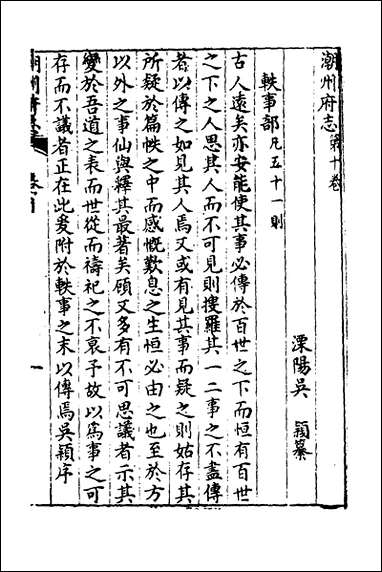 潮州府志第十卷
溧陽吳 穎纂
軼事部凡五十一則
古人遠矣亦安能使其事必傳於百世之下而恒有百世
之下之人思其人而不可見則搜羅其一二事之不盡傳
者以傳之如見其人焉又或有見其事而疑之則姑存其
所疑於篇帙之中而感慨歎息之生恒必由之也至於方
以外之事仙與釋其最著矣顧又多有不可思議者示其
變於吾道之表而世從而禱祀之不衰予故以為事之可
存而不議者正在此爰附於軼事之末以傳焉吳穎序
一